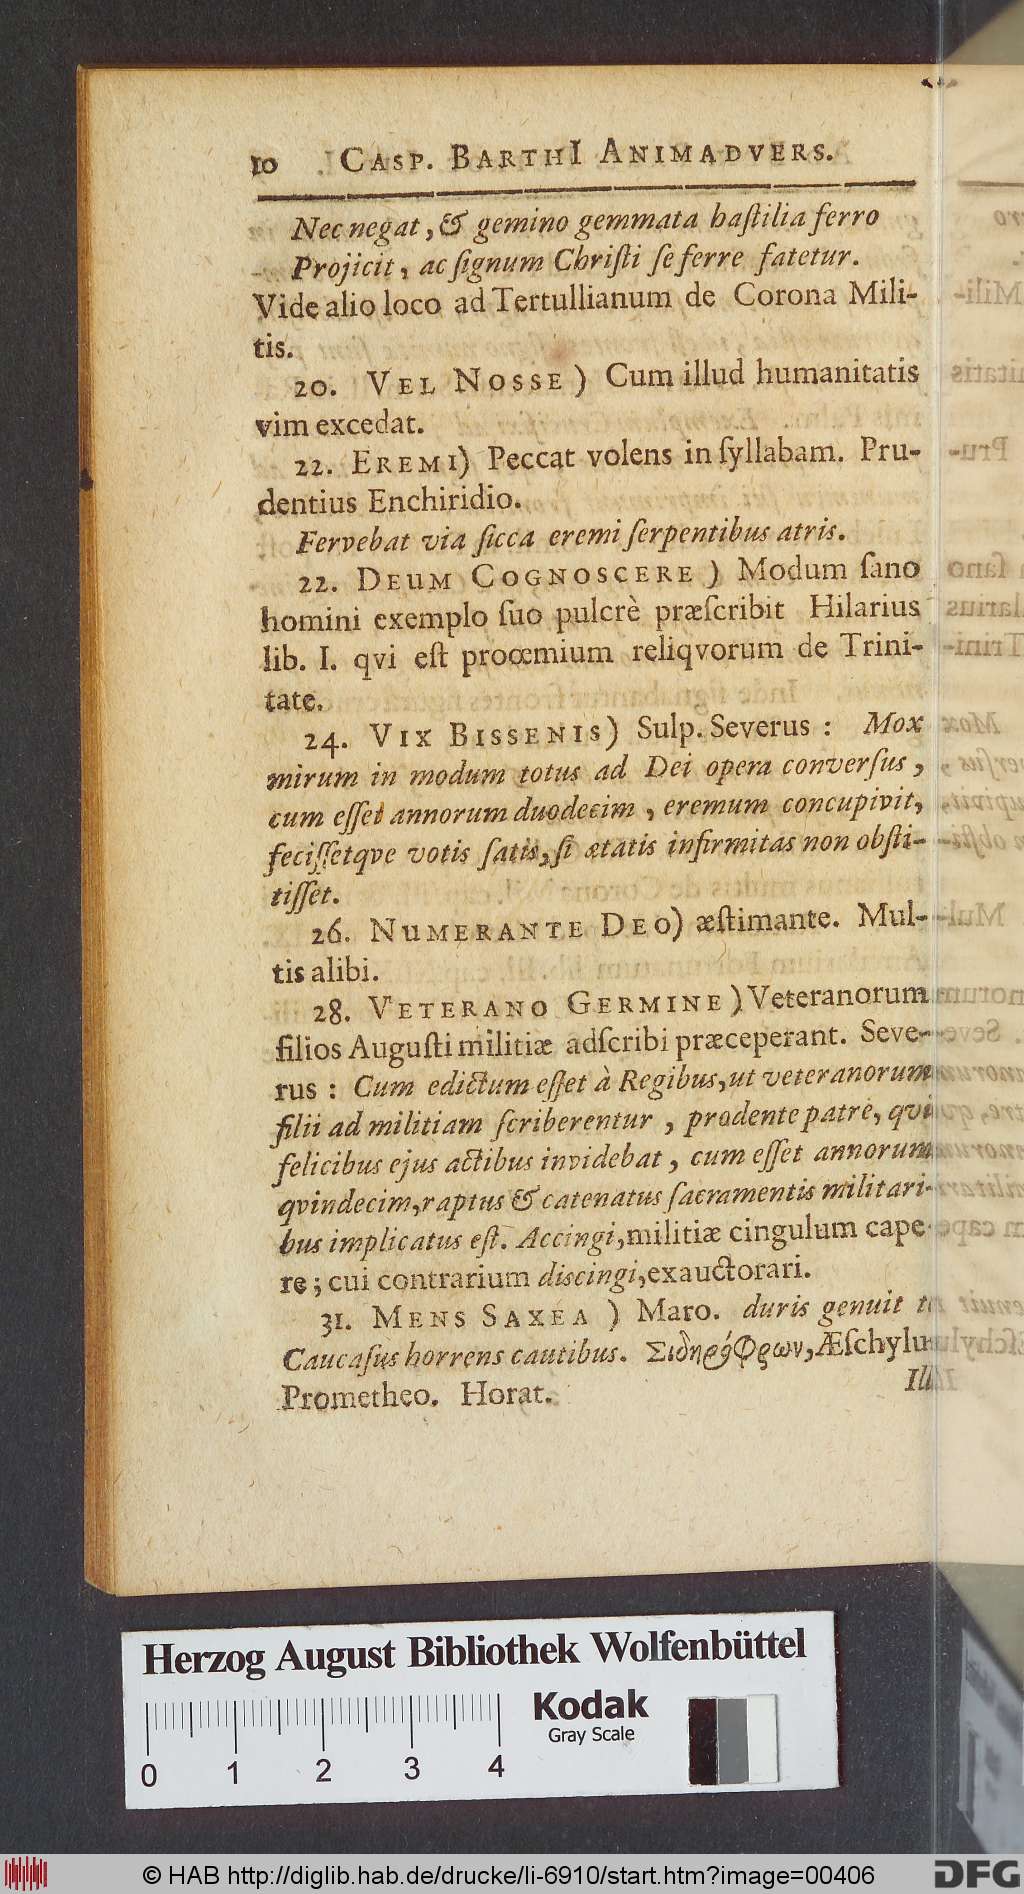 10 CASP. BARTHI ANIMADVERS.
Nec negat, & gemino gemmata haſtilia ferro
Projicit, ac ſignum Chriſti ſe ferre fatetur.
Vide alio loco ad Tertullianum de Corona Mili-
tis.
20. VEL NOSSE) Cum illud humanitatis
vim excedat.
22. EREMI) Peccat volens in ſyllabam. Pru-
dentius Enchiridio.
Fervebat via ſicca eremi ſerpentibus atris.
22. DEUM COGNOSCERE) Modum ſano
homini exemplo ſuo pulcrè præſcribit Hilarius
lib. I. qvi eſt proœmium reliqvorum de Trini-
tate.
24. VIX BISSENIS) Sulp. Severus: Mox
mirum in modum totus ad Dei opera converſus,
cum eſſet annorum duodecim, eremum concupivit,
feciſſetqve votis ſatis, ſi ætatis infirmitas non obſti-
tiſſet.
26. NUMERANTE DEO) æſtimante. Mul-
tis alibi.
28. VETERANO GERMINE) Veteranorum
filios Auguſti militiæ adſcribi præceperant. Seve-
rus: Cum edictum eſſet à Regibus, ut veteranorum
filii ad militiam ſcriberentur, prodente patre, qvi
felicibus ejus actibus invidebat, cum eſſet annorum
qvindecim, raptus & catenatus ſacramentis militari-
bus implicatus eſt. Accingi, militiæ cingulum cape-
re; cui contrarium discingi, exauctorari.
31. MENS SAXEA) Maro. duris genuit te
Caucaſus horrens cautibus. Σιδηρόφρων, Æſchylus
Prometheo. Horat.
Ill
Herzog August Bibliothek Wolfenbüttel
Kodak
Gray Scale
0 1 2 3 4
© HAB http://diglib.hab.de/drucke/li-6910/start.htm?image=00406
DFG